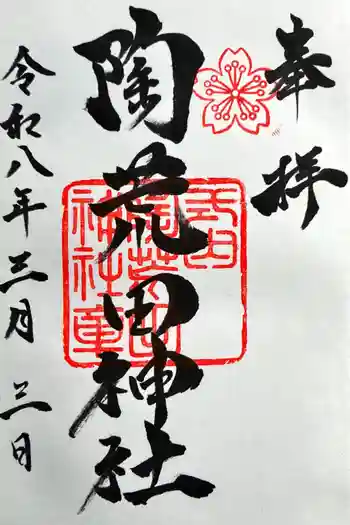 奉拝
陶荒田神社
令和八年三月三日
式内
陶荒田
神社章